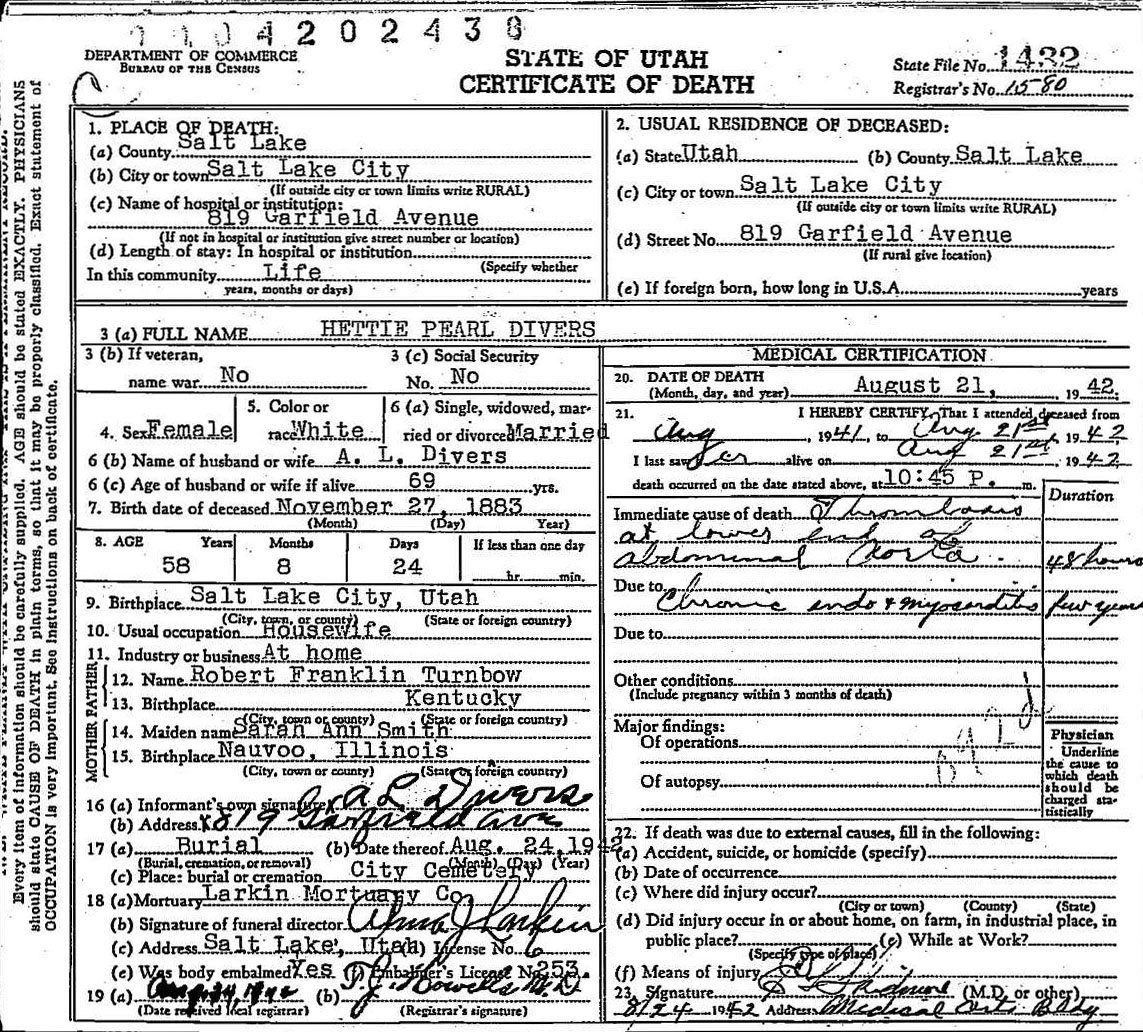 4202430
DEPARTMENT OF COMMERCE
BUREAU OF THE CENSUS
STATE OF UTAH
CERTIFICATE OF DEATH
State File No. 1432
Registrar's No. 1580
Every item of information should be carefully supplied. AGE should be stated EXACTLY. PHYSICIANS
should state CAUSE OF DEATH in plain terms, so that it may be properly classified. Exact statement of
OCCUPATION is very important. See instructions on back of certificate.
1. PLACE OF DEATH:
(a) County Salt Lake
(b) City or town Salt Lake City
(If outside city or town limits write RURAL)
(c) Name of hospital or institution:
819 Garfield Avenue
(If not in hospital or institution give street number or location)
(d) Length of stay: In hospital or institution
(Specify whether
In this community Life
years, months or days)
2. USUAL RESIDENCE OF DECEASED:
(a) State Utah (b) County Salt Lake
(c) City or town Salt Lake City
(If outside city or town limits write RURAL)
(d) Street No. 819 Garfield Avenue
(If rural give location)
(e) If foreign born, how long in U.S.A. years
3 (a) FULL NAME HETTIE PEARL DIVERS
3 (b) If veteran, 3 (c) Social Security
name war. No No. No
5. Color or 6 (a) Single, widowed, mar-
4. Sex Female race White ried or divorced Married
6 (b) Name of husband or wife A. L. Divers
6 (c) Age of husband or wife if alive 69 yrs.
7. Birth date of deceased November 27, 1883
(Month) (Day) Year)
8. AGE Years Months Days If less than one day
58 8 24 hr. min.
9. Birthplace Salt Lake City, Utah
(City, town, or county) (State or foreign country)
10. Usual occupation Housewife
11. Industry or business At home
FATHER
12. Name Robert Franklin Turnbow
13. Birthplace Kentucky
(City, town or county) (State or foreign country)
MOTHER
14. Maiden name Sarah Ann Smith
15. Birthplace Nauvoo, Illinois
(City, town or county) (State or foreign country)
16 (a) Informant's own signature A L Divers
(b) Address X 819 Garfield Ave
17 (a) Burial (b) Date thereof Aug. 24, 1942
(Burial, cremation, or removal) (Month) (Day) (Year)
(c) Place: burial or cremation City Cemetery
18 (a) Mortuary Larkin Mortuary Co.
(b) Signature of funeral director Alma J Larkin
(c) Address Salt Lake, Utah (d) License No. 6
(e) Was body embalmed? Yes (f) Embalmer's License No. 253.
19 (a) Aug. 24, 1942 (b) T.J. Howells M.D.
(Date received local registrar) (Registrar's signature)
MEDICAL CERTIFICATION
20. DATE OF DEATH
(Month, day, and year) August 21, 1942.
21. I HEREBY CERTIFY, That I attended deceased from
Aug, 1941, to Aug 21st, 1942
I last saw her alive on Aug 21st, 1942
death occurred on the date stated above, at 10:45 P. m.
Duration
Immediate cause of death Thrombosis
at lower end of
abdominal Aorta. 48 hours
Due to
Chronic endo & myocarditis few years
Due to
Other conditions
(Include pregnancy within 3 months of death)
Major findings:
Of operations
Of autopsy
Physician
Underline
the cause to
which death
should be
charged sta-
tistically
22. If death was due to external causes, fill in the following:
(a) Accident, suicide, or homicide (specify)
(b) Date of occurrence
(c) Where did injury occur?
(City or town) (County) (State)
(d) Did injury occur in or about home, on farm, in industrial place, in
public place? (e) While at Work?
(Specify type of place)
(f) Means of injury
23. Signature (M.D. or other)
8/24 1942 Address Medical Arts Bldg